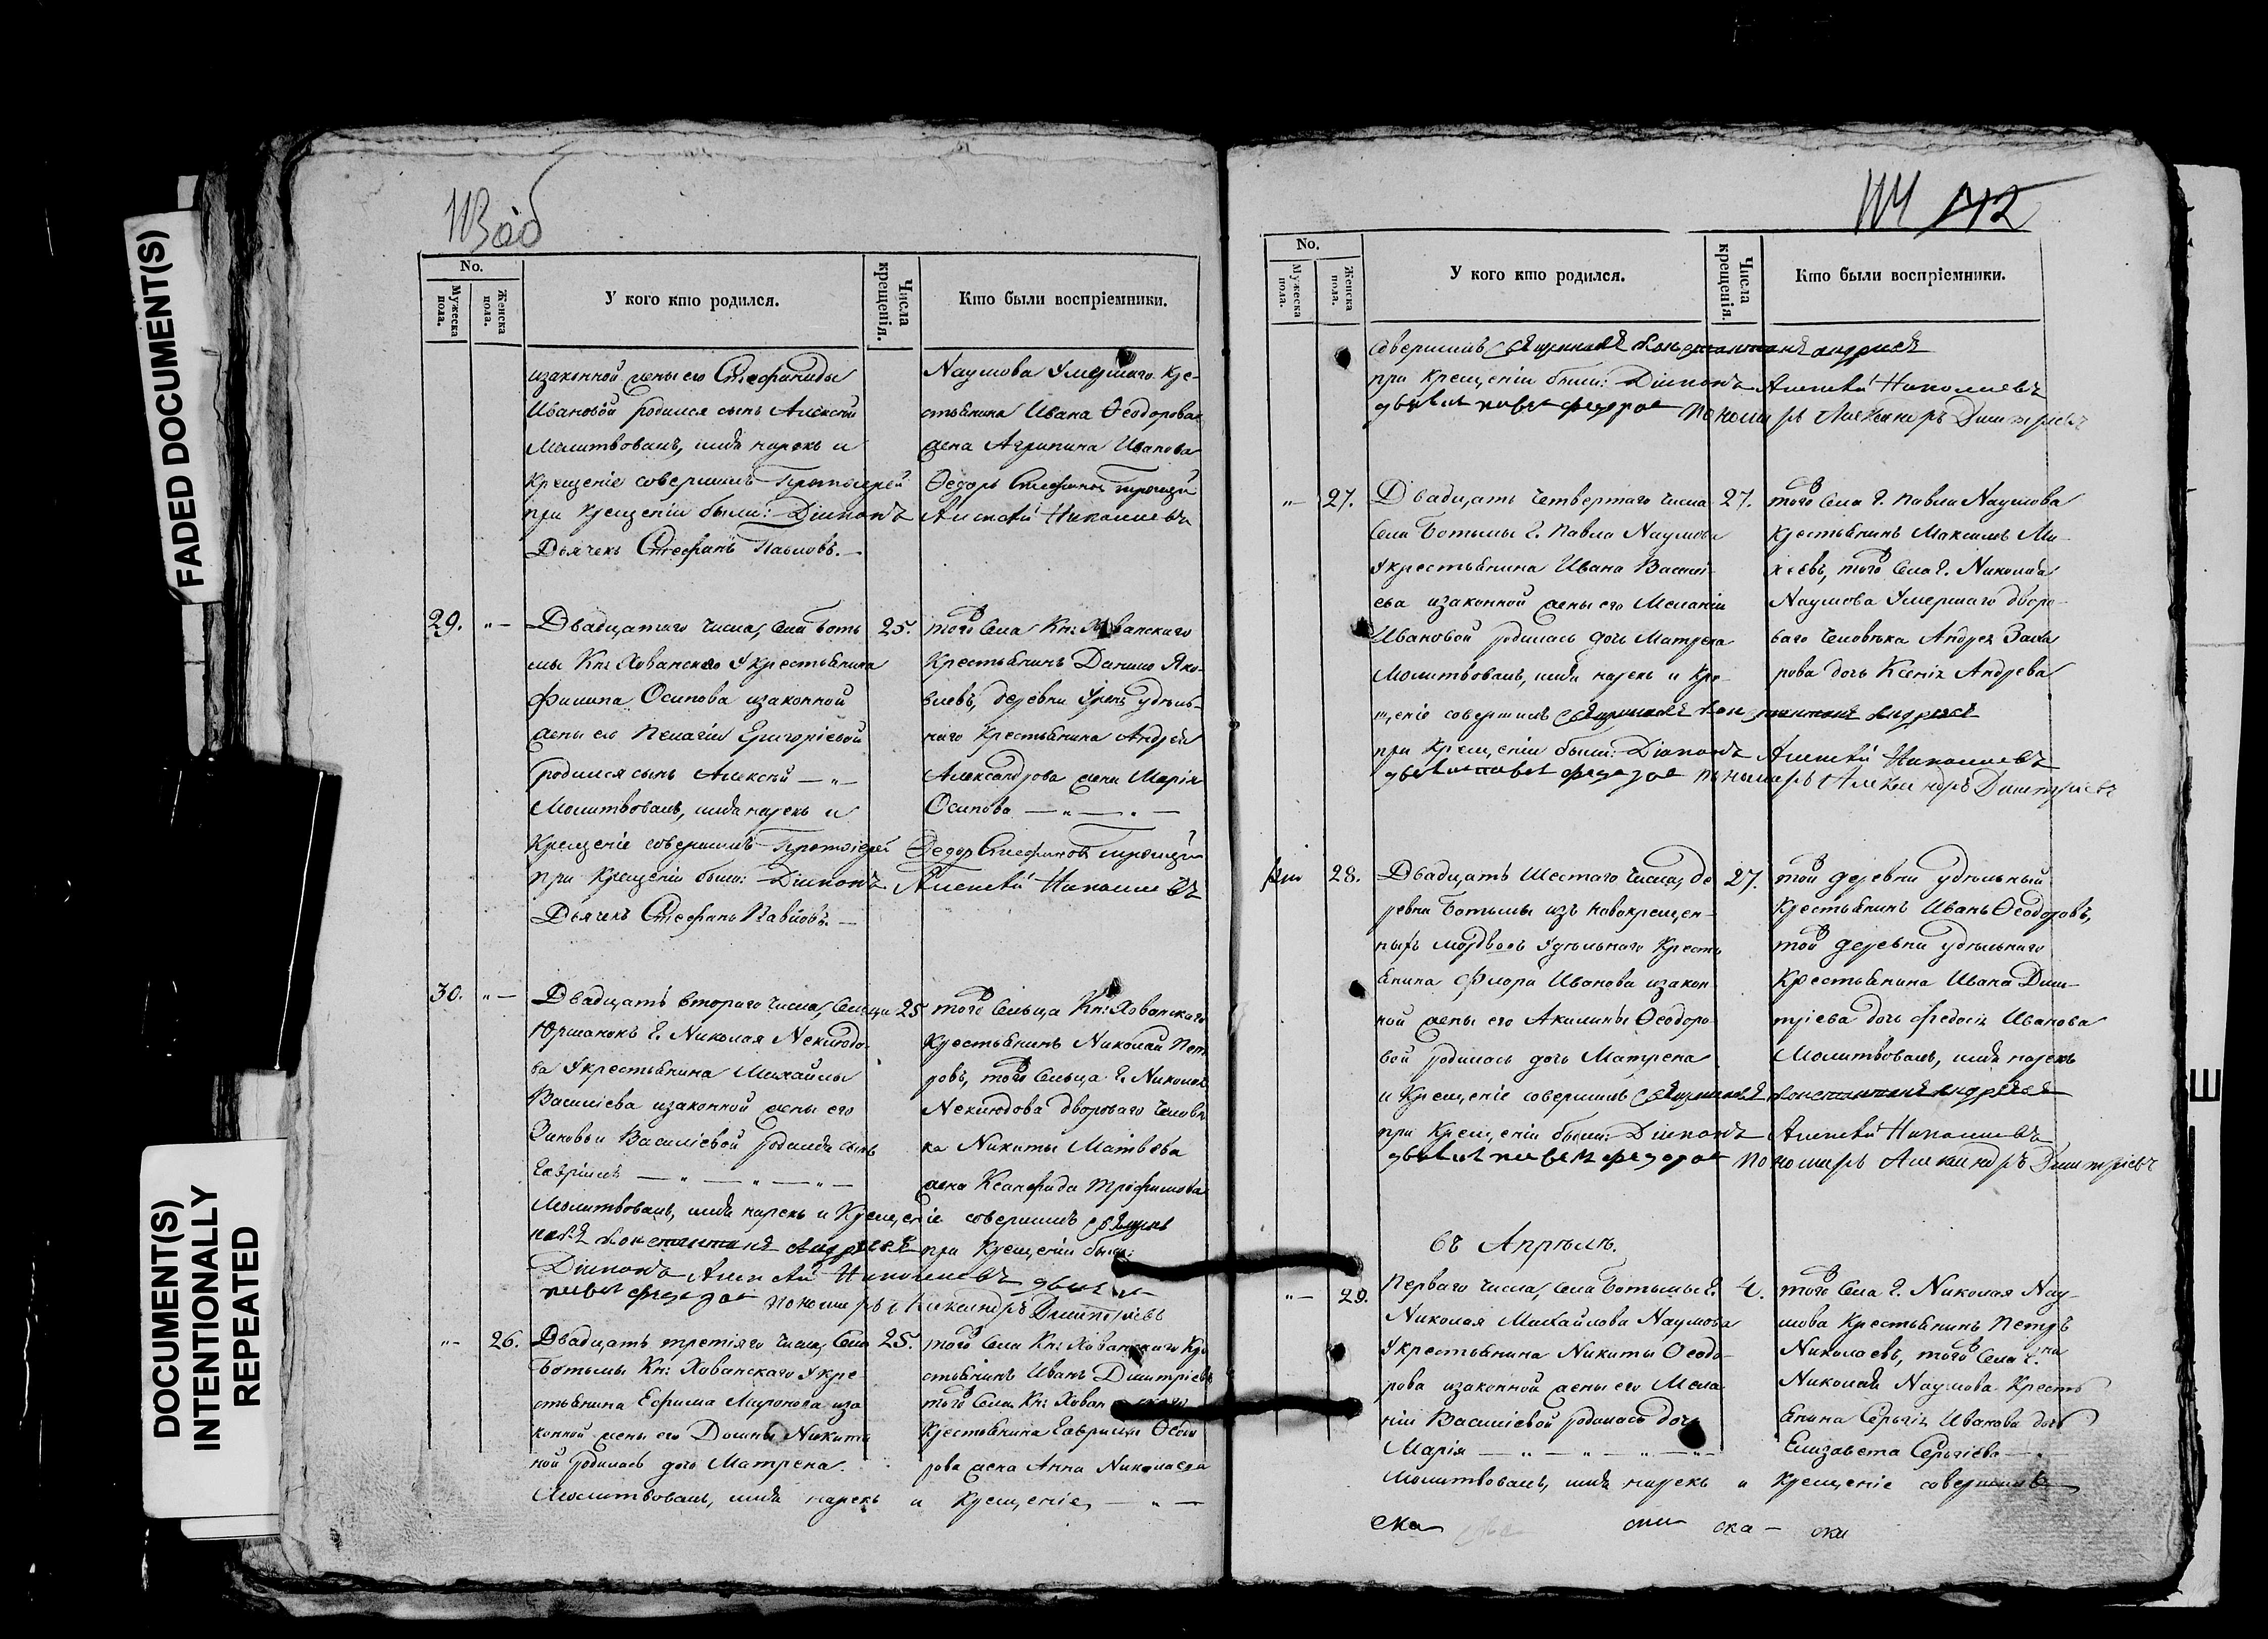 FADED DOCUMENT(S)
DOCUMENT(S)
INTENTIONALLY
REPEATED
113 об
No.
Мужеска пола.
Женска пола.
У кого кто родился.
Числа крещенія.
Кто были воспріемники.
изаконной жены его Стефаниды
Ивановой родился сынъ Алексѣй
Молитвовалъ, имя нарекъ и
Крещеніе совершилъ Протоіерей
при крещеніи были: Діяконъ Алексѣй Николаевъ
Дьячекъ Стефанъ Павловъ.
Наумова Умершаго Кре-
стьянина Ивана Ѳеодорова
жена Агрипина Иванова
Ѳедоръ Стефановъ
29. "— Двадцатаго числа, села Боть
мы Кн: Хованскаго Укрестьянина
Филипа Осипова изаконной
жены его Пелагіи Григоріевой
родился сынъ Алексѣй — " —
Молитвовалъ, имя нарекъ и
Крещеніе совершилъ Протоіерей
при Крещеніи были: Діяконъ Алексѣй Николаевъ
Дьячекъ Стефанъ Павловъ. —
25. того Села Кн: Хованскаго
Крестьянинъ Данило Яко-
влевъ, деревни Урень удѣль-
наго Крестьянина Андрея
Александрова жена Марія
Осипова — " — " —
Ѳедоръ Стефановъ
30. "— Двадцать втораго числа, Сельца
Юрманокъ Г. Николая Неклюдо-
ва Укрестьянина Михайлы
Василіева изаконной жены его
Зиновьи Василіевой родился сынъ
Гаврiилъ — " — " — " —
25 того Сельца Кн: Хованскаго
Крестьянинъ Николай Пет
ровъ, того Сельца Г. Николая
Неклюдова двороваго человѣ
ка Никиты Матвѣева
жена Ксанфида Трофимова
Молитвовалъ, имя нарекъ и Крещеніе совершилъ Священ
никъ Константинъ Андреевъ при Крещеніи были:
Діяконъ Алексѣй Николаевъ дьячекъ
павелъ федоровъ пономарь Александръ Димитріевъ
"— 26. Двадцать третіяго числа, Села
Ботьмы Кн: Хованскаго Укре
стьянина Ефима Миронова иза
конной жены его Домны Никити
ной родилась дочь Матрена.
25. того Села Кн: Хованскаго Кре
стьянинъ Иванъ Димитріевъ
того Села Кн: Хованскаго
Крестьянина Гаврилы Ѳеодо
рова жена Анна Николаева
Молитвовалъ, имя нарекъ и Крещеніе, — " —
114 112
No.
Мужеска пола.
Женска пола.
У кого кто родился.
Числа крещенія.
Кто были воспріемники.
совершилъ Священникъ Константинъ Андреевъ
при крещеніи были: Діяконъ Алексѣй Николаевъ
дьячекъ павелъ федоровъ пономарь Александръ Димитріевъ
"— 27. Двадцать четвертаго числа
Села Ботьмы Г. Павла Наумова
Укрестьянина Ивана Василі-
ева изаконной жены его Меланіи
Ивановой родилась дочь Матрена
Молитвовалъ, имя нарекъ и Кре-
щеніе совершилъ Священникъ Константинъ Андреевъ
при Крещеніи были: Діяконъ Алексѣй Николаевъ
дьячекъ павелъ федоровъ пономарь Александръ Димитріевъ
27. того Села Г. Павла Наумова
Крестьянинъ Максимъ Ми-
хеевъ, того Села Г. Николая
Наумова Умершаго дворо-
ваго человѣка Андрея Заха
рова дочь Ксенія Андрева
28. Двадцать шестаго числа, де
ревни Ботьмы изъ новокрещен-
ныхъ мордвовъ Удѣльнаго Кресть
янина Флора Иванова изакон
ной жены его Акилины Ѳеодоро
вой родилась дочь Матрена
и Крещеніе совершилъ Священникъ Константинъ Андреевъ
при Крещеніи были: Діяконъ Алексѣй Николаевъ
дьячекъ павелъ федоровъ пономарь Александръ Димитріевъ
27. той деревни удѣльный
Крестьянинъ Иванъ Ѳеодоровъ,
той деревни удѣльнаго
Крестьянина Ивана Дим-
тріева дочь Федосія Иванова
Молитвовалъ, имя нарекъ
въ Апрѣлѣ.
"— 29. Перваго числа, Села Ботьмы Г.
Николая Михайлова Наумова
Укрестьянина Никиты Ѳеодо-
рова изаконной жены его Мела
ніи Василіевой родилась дочь
Марія — " — " — " —
4. того Села Г. Николая Нау-
мова Крестьянинъ Петръ
Николаевъ, того Села Г-на
Николая Наумова Кресть
янина Сергія Иванова дочь
Елизавета Сергіева —
Молитвовалъ, имя нарекъ и крещеніе совершилъ